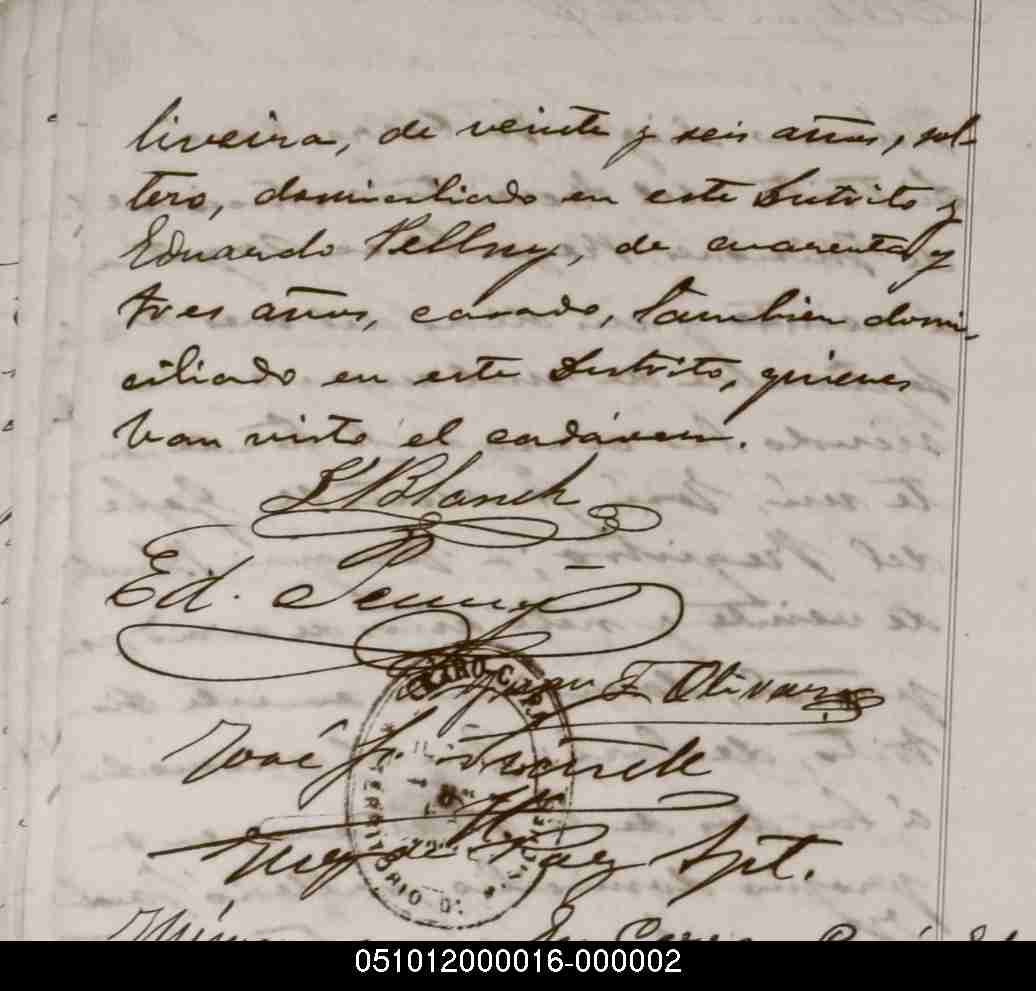 liveira, de veinte y seis años, sol-
tero, domiciliado en este Distrito y
Eduardo Pellny, de cuarenta y
tres años, casado, tambien domi-
ciliado en este Distrito, quienes
han visto el cadáver.
L Blanch
Ed.
F Olivares
José
Juez de Paz Spt.
TERRITORIO D
051012000016-000002